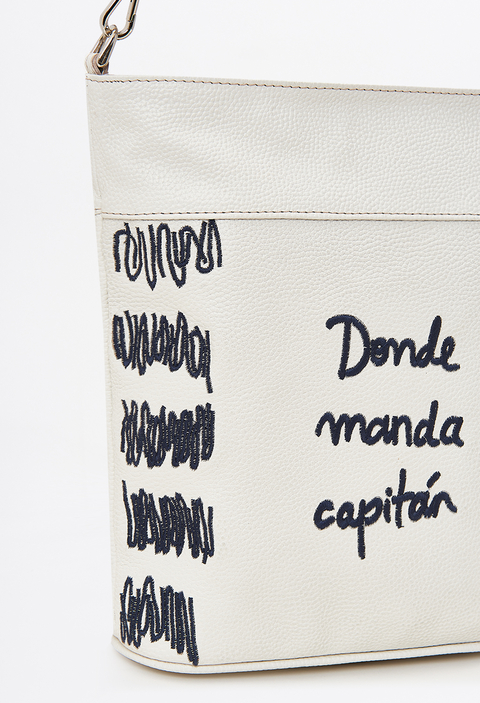 Donde
manda
capitán